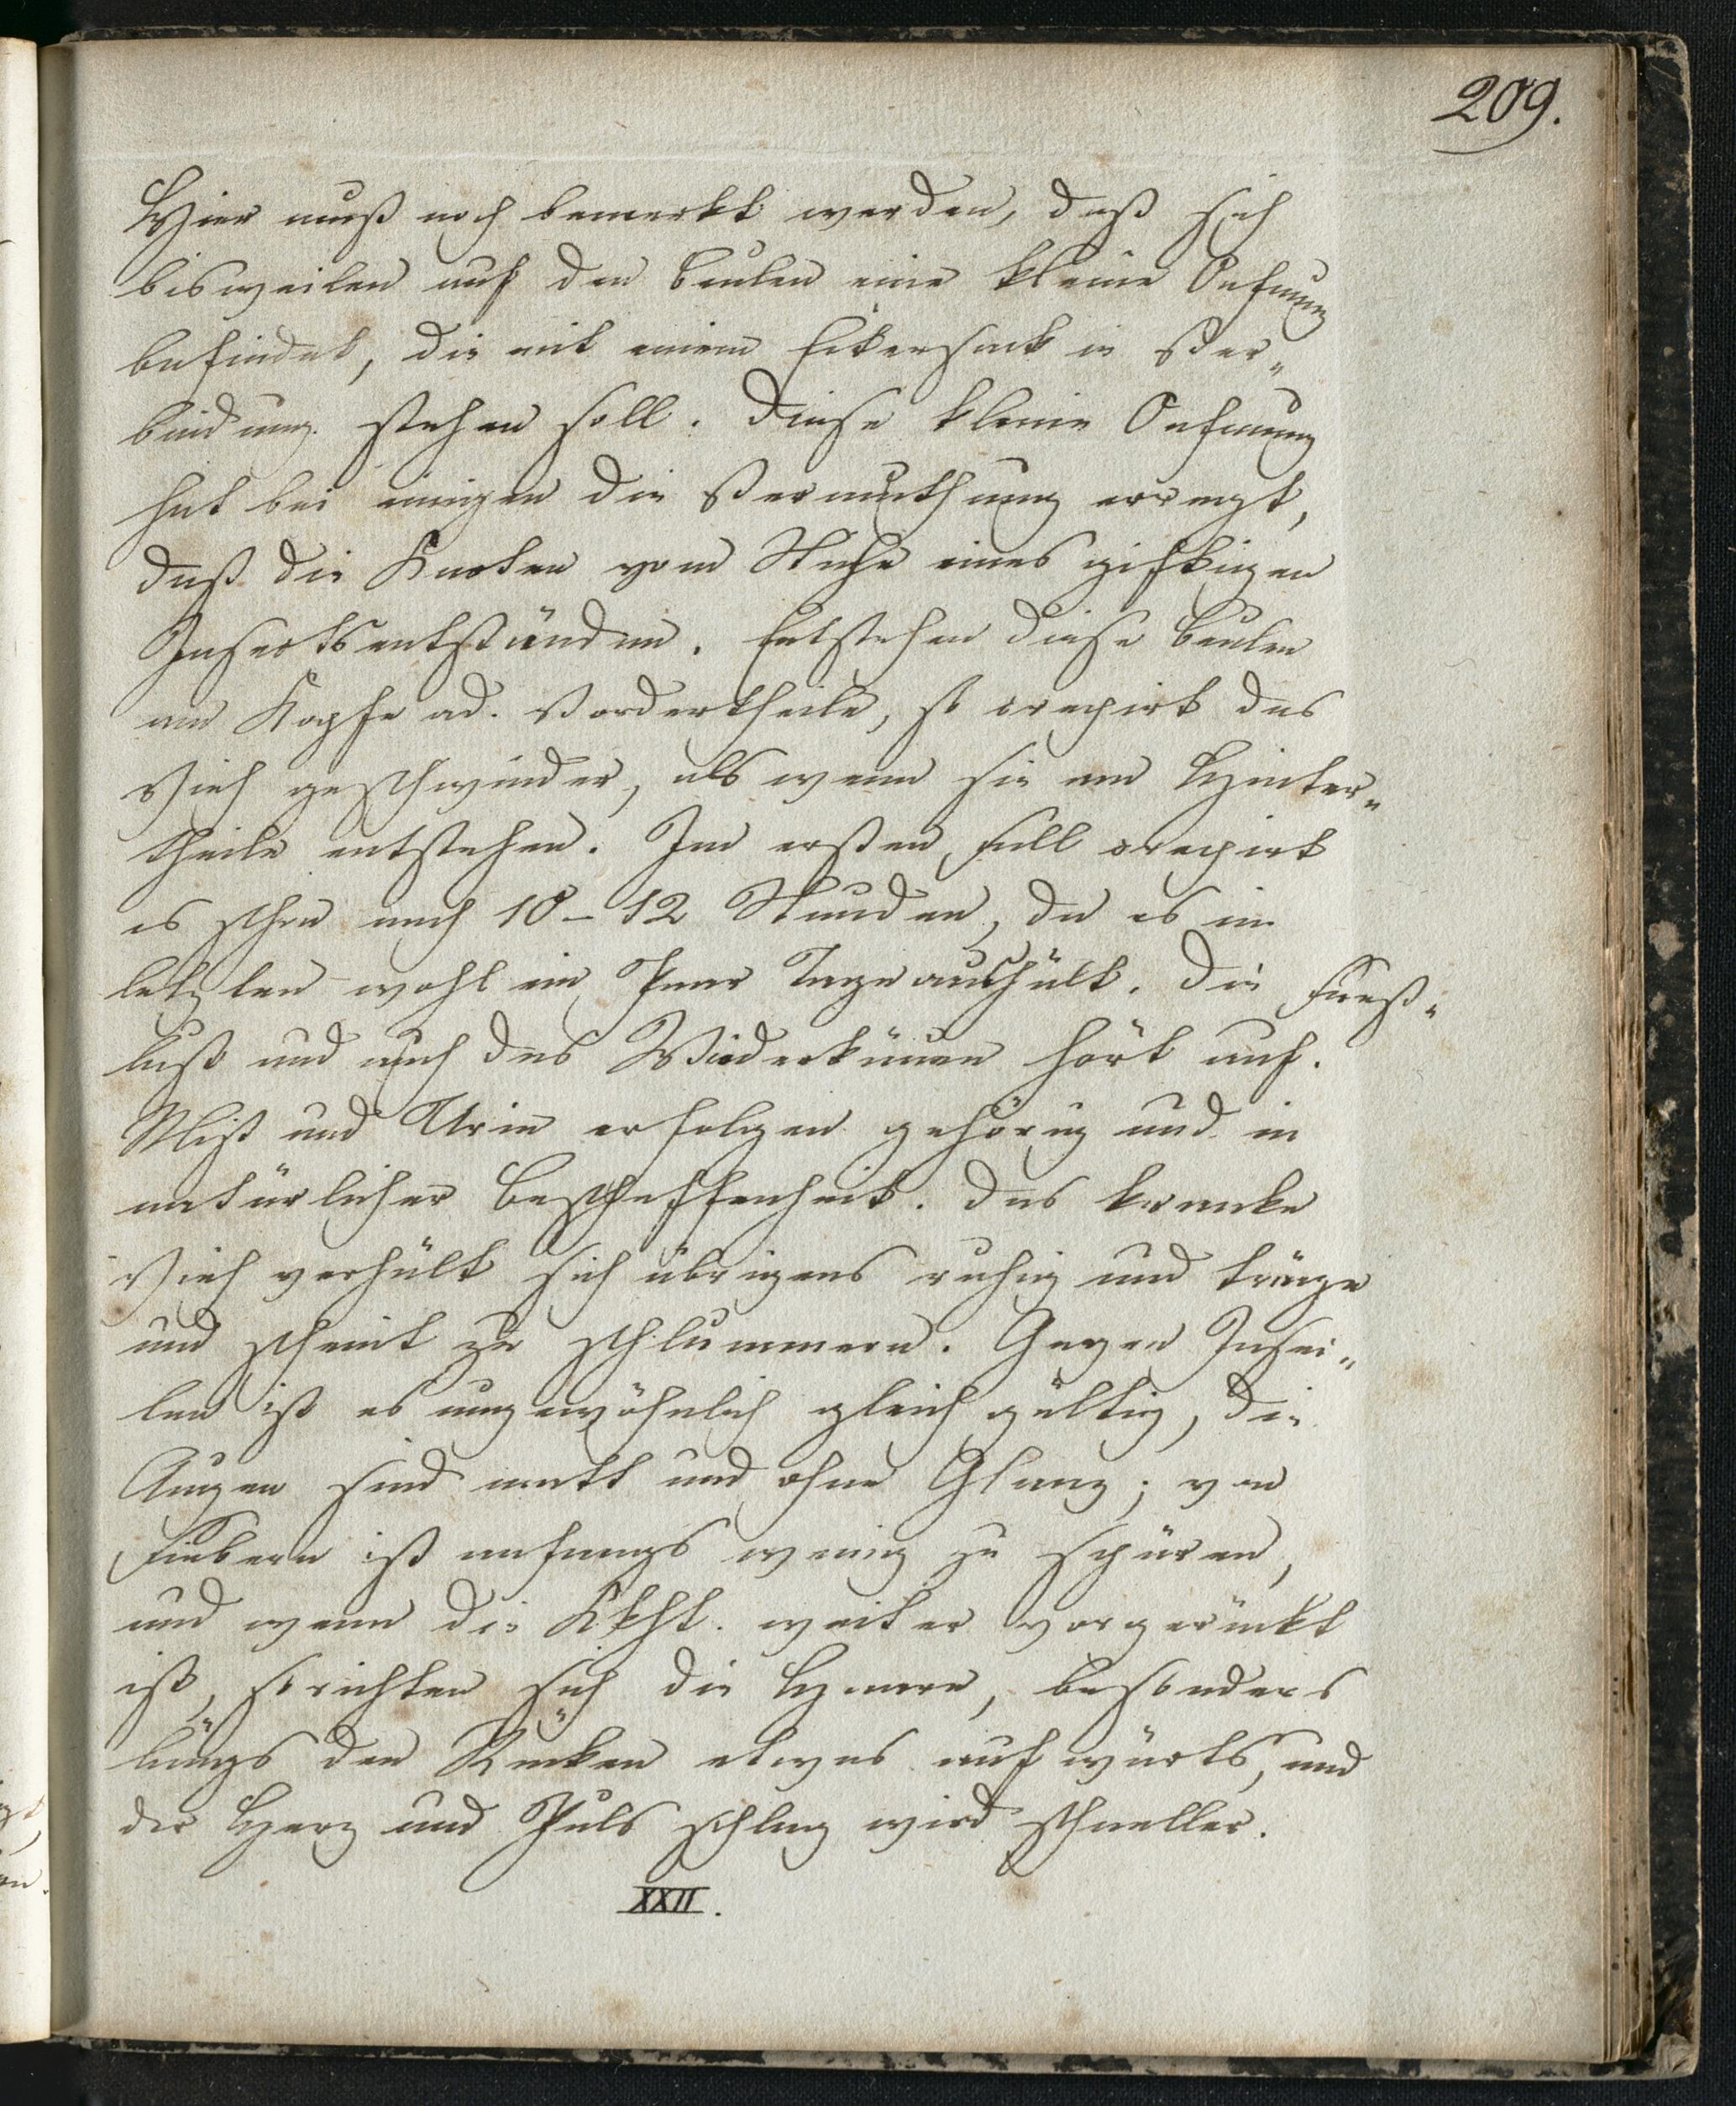 209.
Hier muß noch bemerkt werden, daß sich
bisweilen auf den Beulen eine kleine Oefnung
befindet, die mit einem Eitersack in Ver„
bindung stehen soll. Diese kleine Oefnung
hat bei einigen die Vermuthung erregt,
daß die Knoten vom Stiche eines giftigen
Insects entständen. Entstehen diese Beulen
am Kopfe od. Vordertheile, so crepirt das
Vieh geschwinder, als wenn sie am Hinter„
theile entstehen. Im ersten Fall crepirt
es schon nach 10 – 12 Stunden, da es im
letzten wohl ein Paar Tage aushält. Die Freß„
lust und auch das Wiederkäuen hört auf.
Mist und Urin erfolgen gehörig und in
natürlicher Beschaffenheit. Das kranke
Vieh verhält sich übrigens ruhig und träge
und scheint zu schlummern. Gegen
ist es ungewöhnlich gleichgültig, die
Augen sind matt und ohne Glanz; von
Fiebern ist anfangs wenig zu spüren,
und wenn die Kkht. weiter vorgerückt
ist, so richten sich die Haare, besonders
längs den Rücken etwas aufwärts, und
der Herz und Puls schlag wird schneller.
XXII.